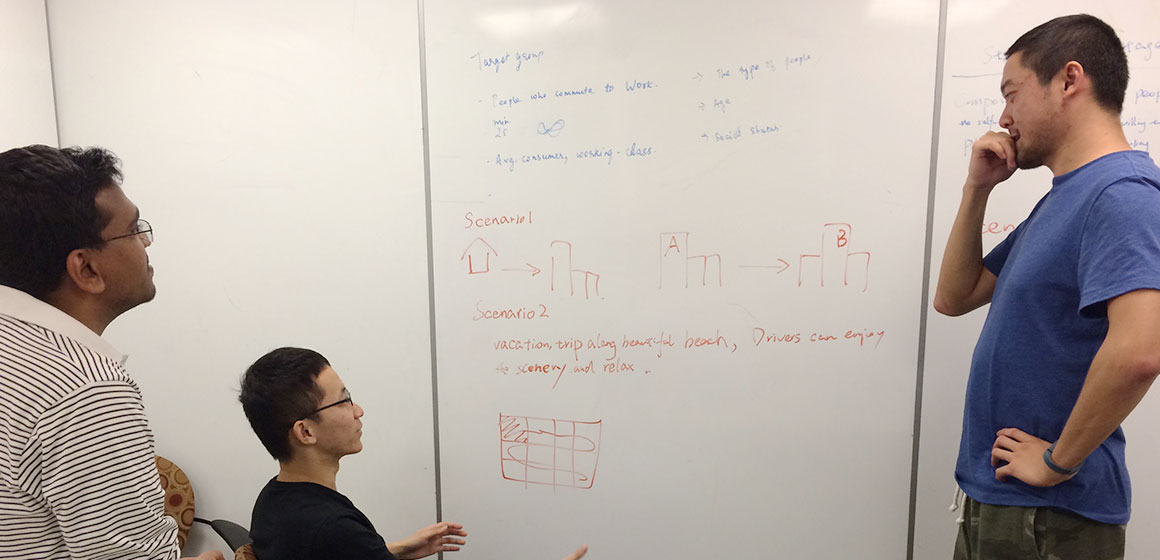 Target group
- People who commute to Work.
min
25
- Avg. consumer, working-class.
→ The type of people
→ Age
→ Social status
Scenario1
A
B
Scenario2
vacation, trip along beautiful beach, Drivers can enjoy
the scenery and relax.
peop